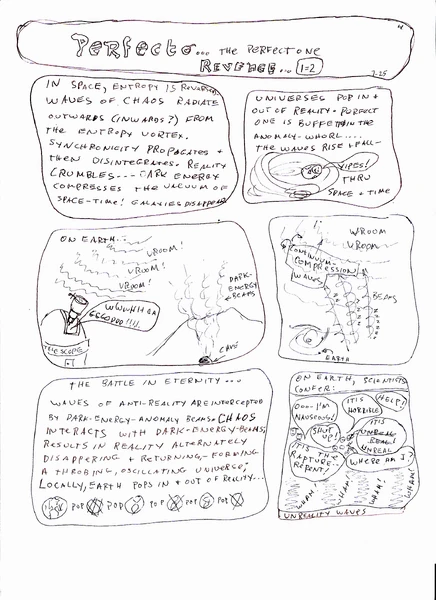 PERFECTO... THE PERFECT ONE
REVENGE... 1=2
7-25
IN SPACE, ENTROPY IS REVERSED
WAVES OF CHAOS RADIATE
OUTWARDS (INWARDS?) FROM
THE ENTROPY VORTEX.
SYNCHRONICITY PROPAGATES +
THEN DISINTEGRATES. REALITY
CRUMBLES--- DARK ENERGY
COMPRESSES THE VACUUM OF
SPACE-TIME! GALAXIES DISAPPEAR
UNIVERSES POP IN +
OUT OF REALITY- PERFECT
ONE IS BUFFETED IN THE
ANOMALY-WHORL....
THE WAVES RISE + FALL-
YIPES!
THRU
SPACE + TIME
ON EARTH...
VROOM!
VROOM!
VROOM!
DARK-
ENERGY
BEAMS
TELESCOPE
CAVE
VROOM
VROOM
CONTINUUM-
COMPRESSION
WAVES
BEAMS
EARTH
THE BATTLE IN ETERNITY...
WAVES OF ANTI-REALITY ARE INTERCEPTED
BY DARK-ENERGY-ANOMALY BEAMS. CHAOS
INTERACTS WITH DARK-ENERGY-BEAMS;
RESULTS IN REALITY ALTERNATELY
DISAPPERING + RETURNING,- FORMING
A THROBING, OSCILLATING UNIVERSE;
LOCALLY, EARTH POPS IN + OUT OF REALITY...
POP POP POP POP
ON EARTH, SCIENTISTS
CONFER...
OOO- I'M
NAUSEOUS!
IT IS
HORRIBLE
HELP!!
SHUT
UP!
IT IS
UNREAL
REAL!
UNREAL
IT'S THE
RAPTURE--
REPENT!
WHERE AM I?
WHAM!
WHAM!
WHAM!
WHAM!
UNREALITY WAVES